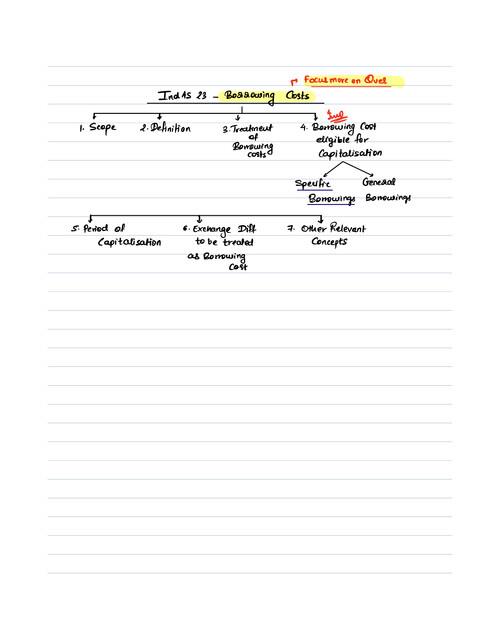 Focus more on Ques
Ind AS 23 - Borrowing Costs
Imp
1. Scope 2. Definition 3. Treatment 4. Borrowing Cost
of eligible for
Borrowing Capitalisation
costs
Specific General
Borrowings Borrowings
5. Period of 6. Exchange Diff 7. Other Relevant
Capitalisation to be treated Concepts
as Borrowing
Cost